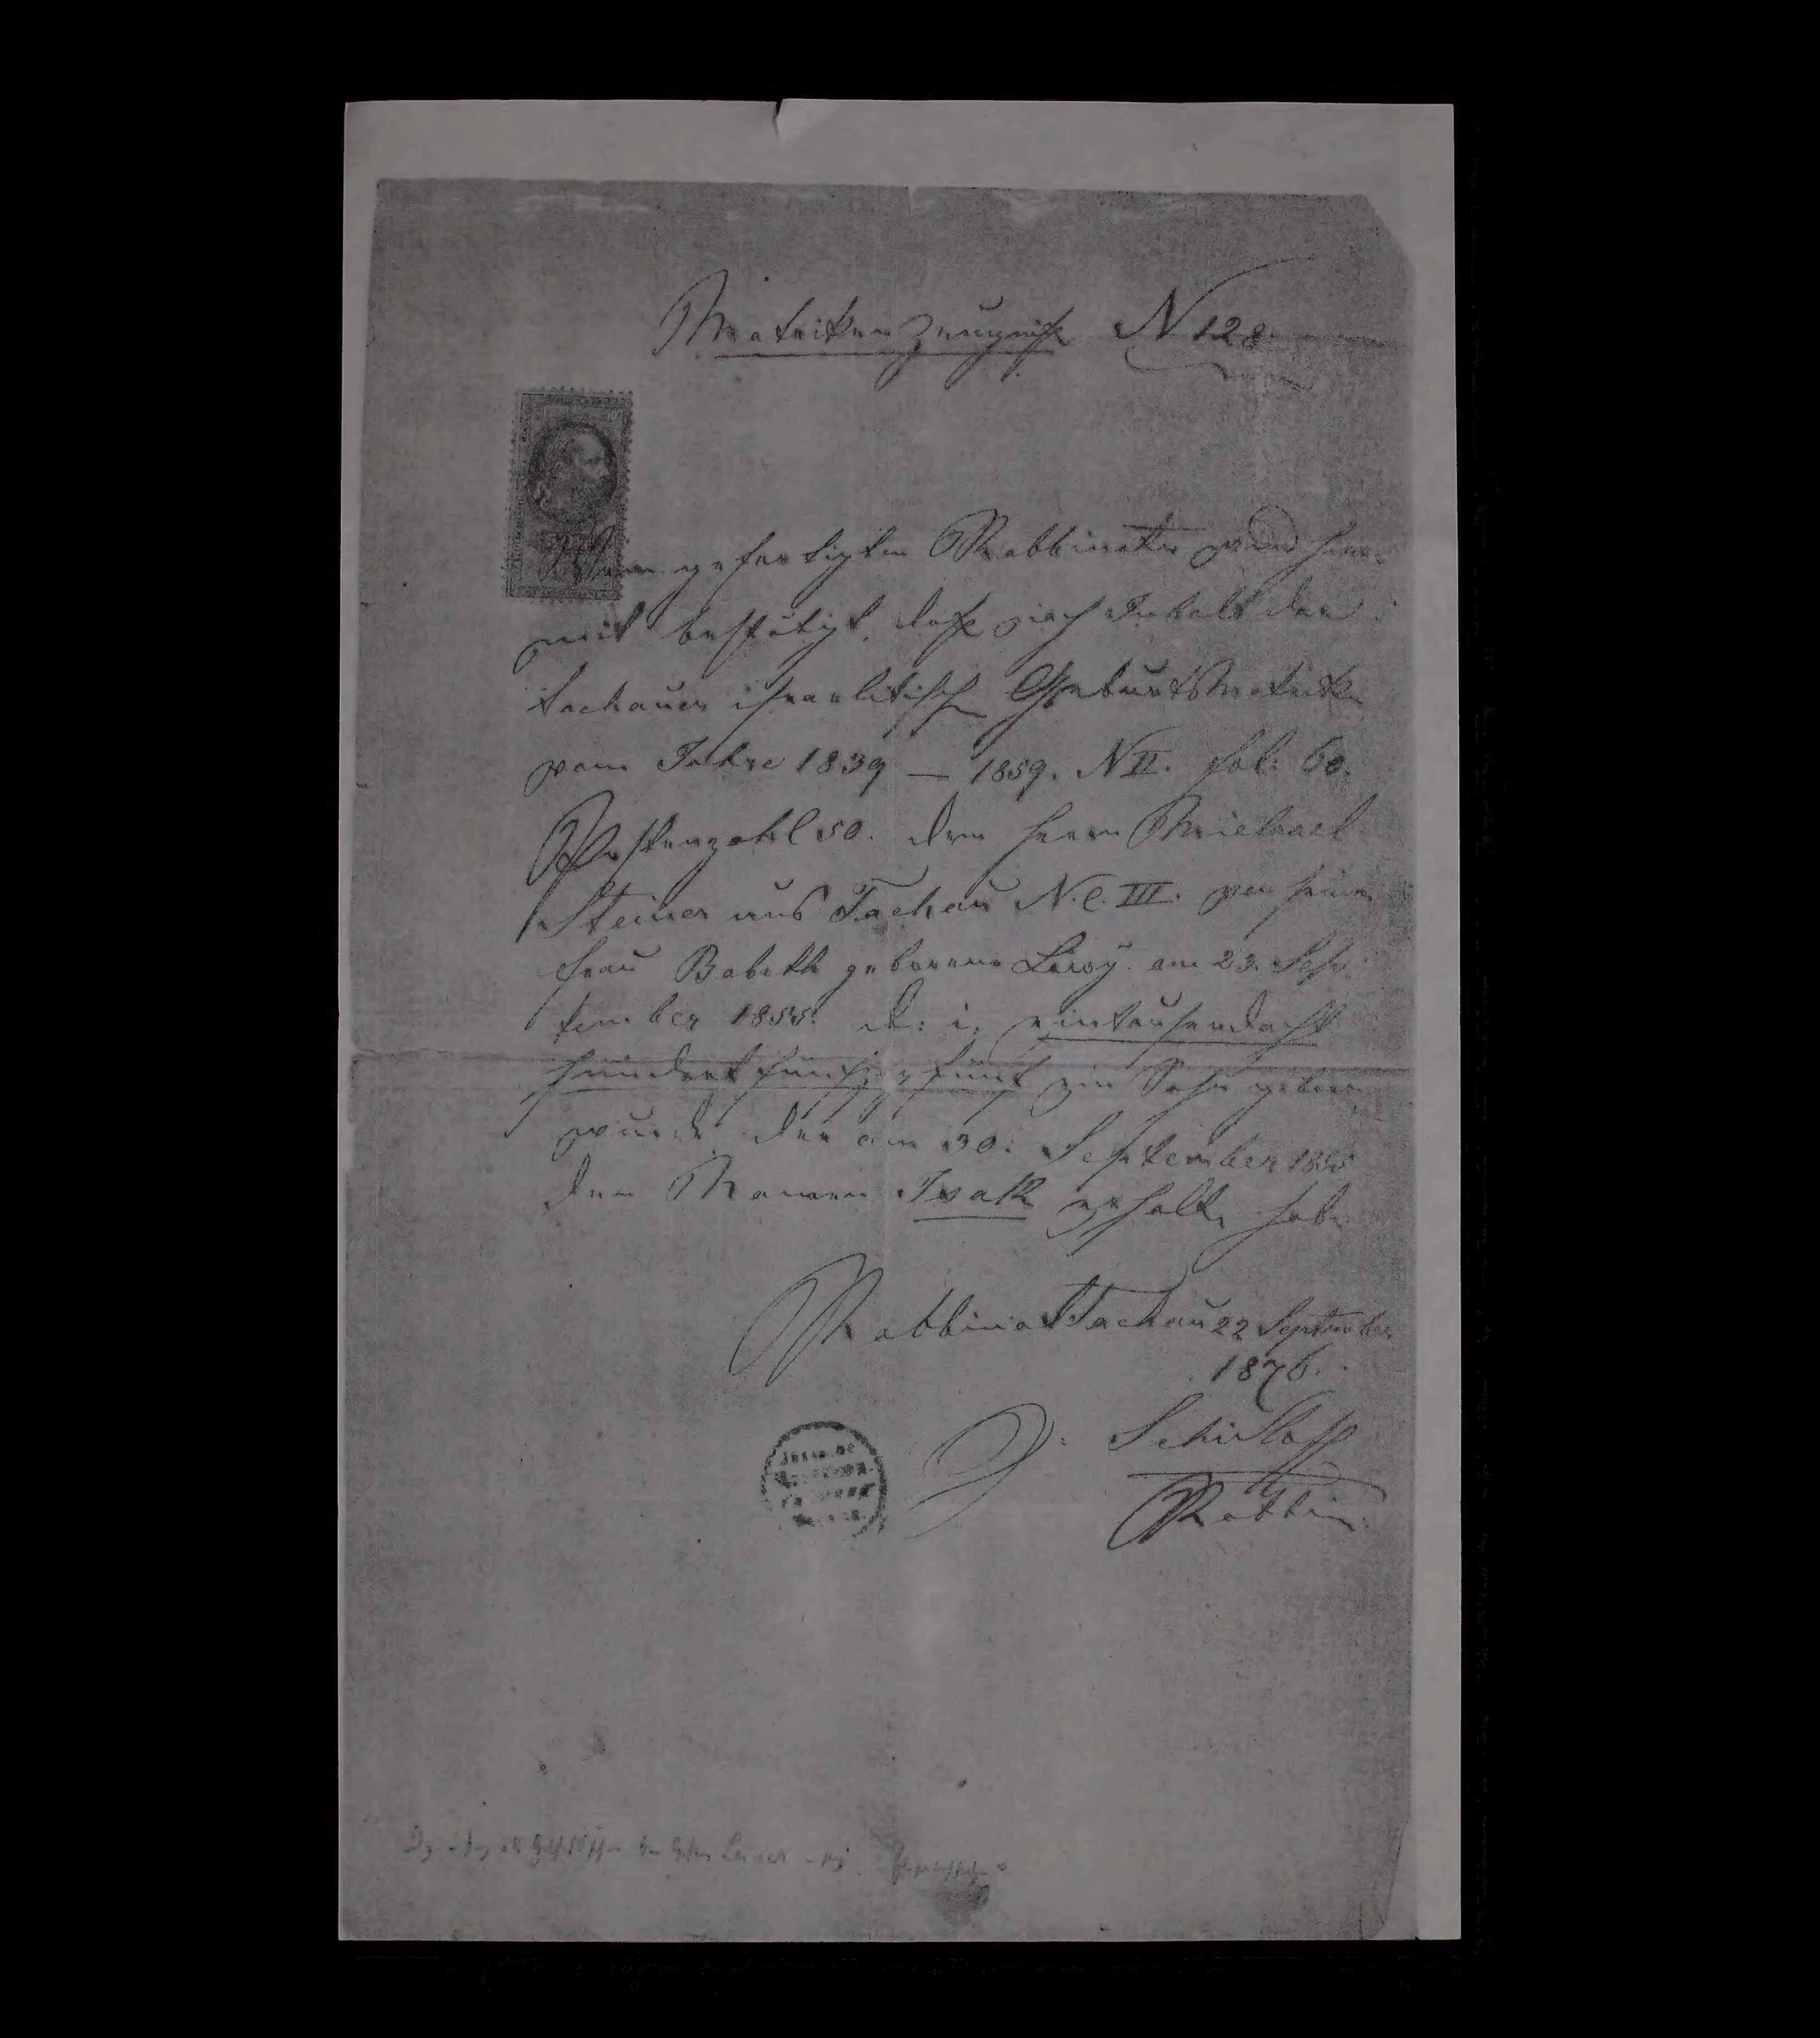 Matrikenzeugniß N 128.
Vom gefertigten Rabbinate wird hie-
mit bestätigt, daß nach Inhalt der
Tachauer israelitischen Geburtsmatrik
vom Jahre 1839 — 1859. N II. fol: 60.
Postenzahl 50. dem Herrn Michael
Steiner aus Tachau N.C. III. von seiner
Frau Babeth geborene Löwy am 23. Sep-
tember 1855. d: i: eintausendacht
hundert fünfzig fünf ein Sohn geboren
wurde, der am 30. September 1855
den Namen Isak erhalten habe
Rabbinat Tachau 22 September
1876.
Rabbiner